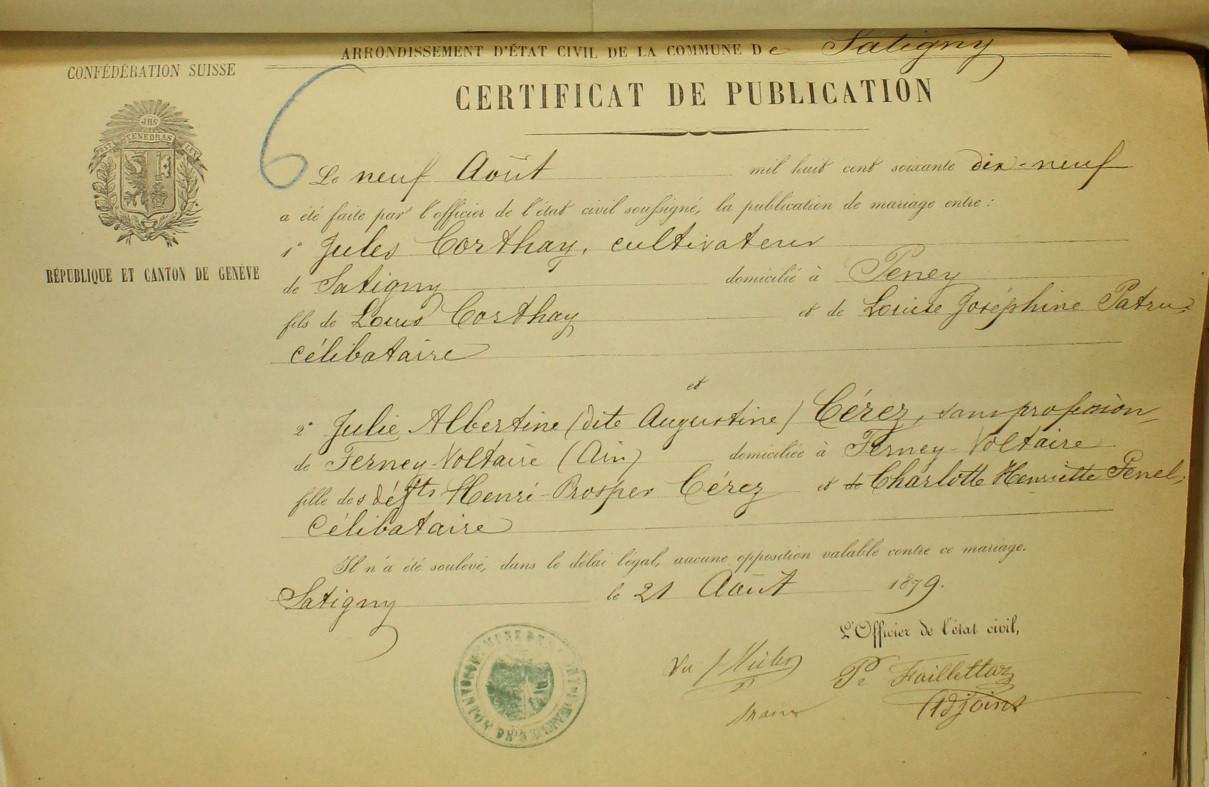 ARRONDISSEMENT D'ÉTAT CIVIL DE LA COMMUNE De Satigny
CONFÉDÉRATION SUISSE
CERTIFICAT DE PUBLICATION
JHS
POST TENEBRAS LUX
RÉPUBLIQUE ET CANTON DE GENÈVE
6
Le neuf Août mil huit cent soixante dix-neuf
a été faite par l'officier de l'état civil soussigné, la publication de mariage entre :
1° Jules Corthay, cultivateur
de Satigny domicilié à Peney
fils de Louis Corthay et de Louise Joséphine Patru,
célibataire
et
2° Julie Albertine (dite Augustine) Cérez, sans profession,
de Ferney-Voltaire (Ain) domiciliée à Ferney-Voltaire
fille des défts Henri-Prosper Cérez et de Charlotte Henriette Penel,
célibataire
Il n'a été soulevé, dans le délai légal, aucune opposition valable contre ce mariage.
Satigny le 21 Août 1879.
L'Officier de l'état civil,
Vu
Faillettaz
adjoint